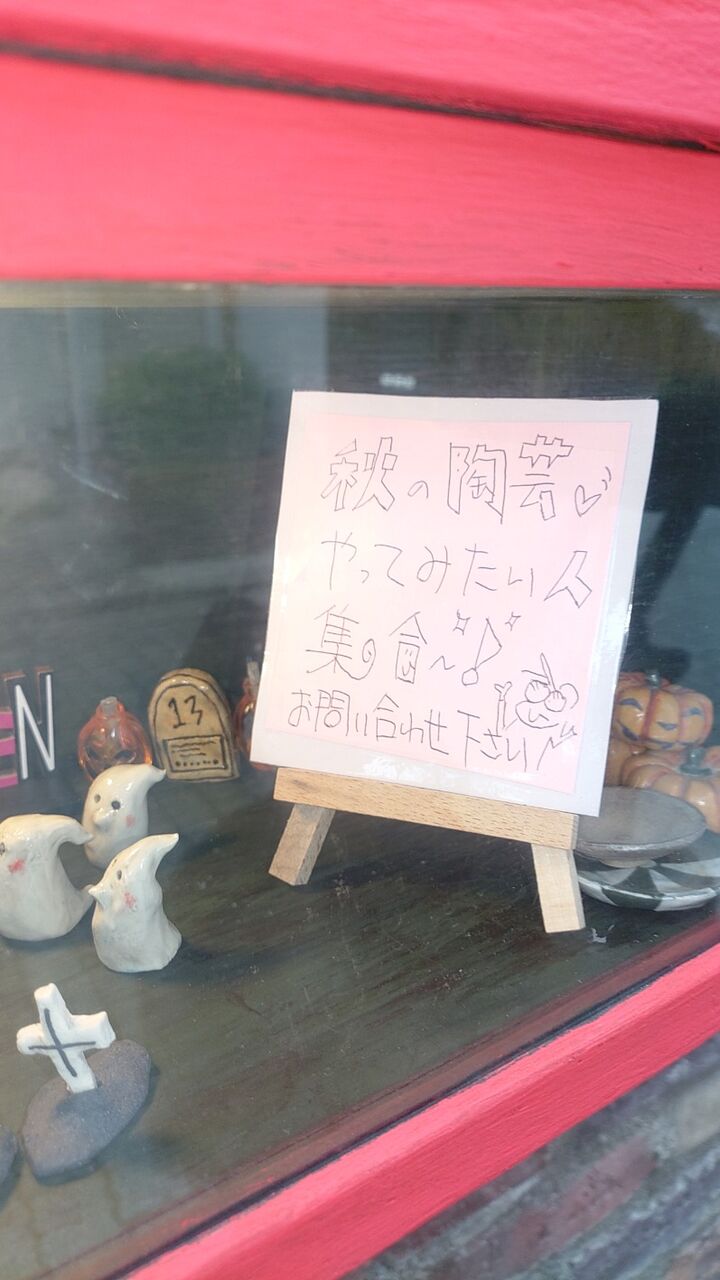 秋の陶芸♡
やってみたい人
集合〜♪
お問い合わせ下さい
13
N